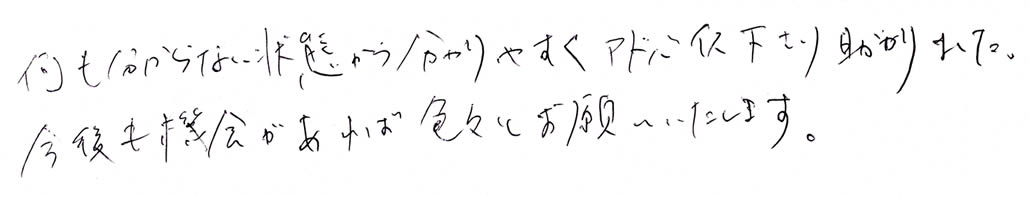 何も分からない状態から分かりやすくアドバイス下さり助かりました。
今後も機会があれば色々とお願いいたします。